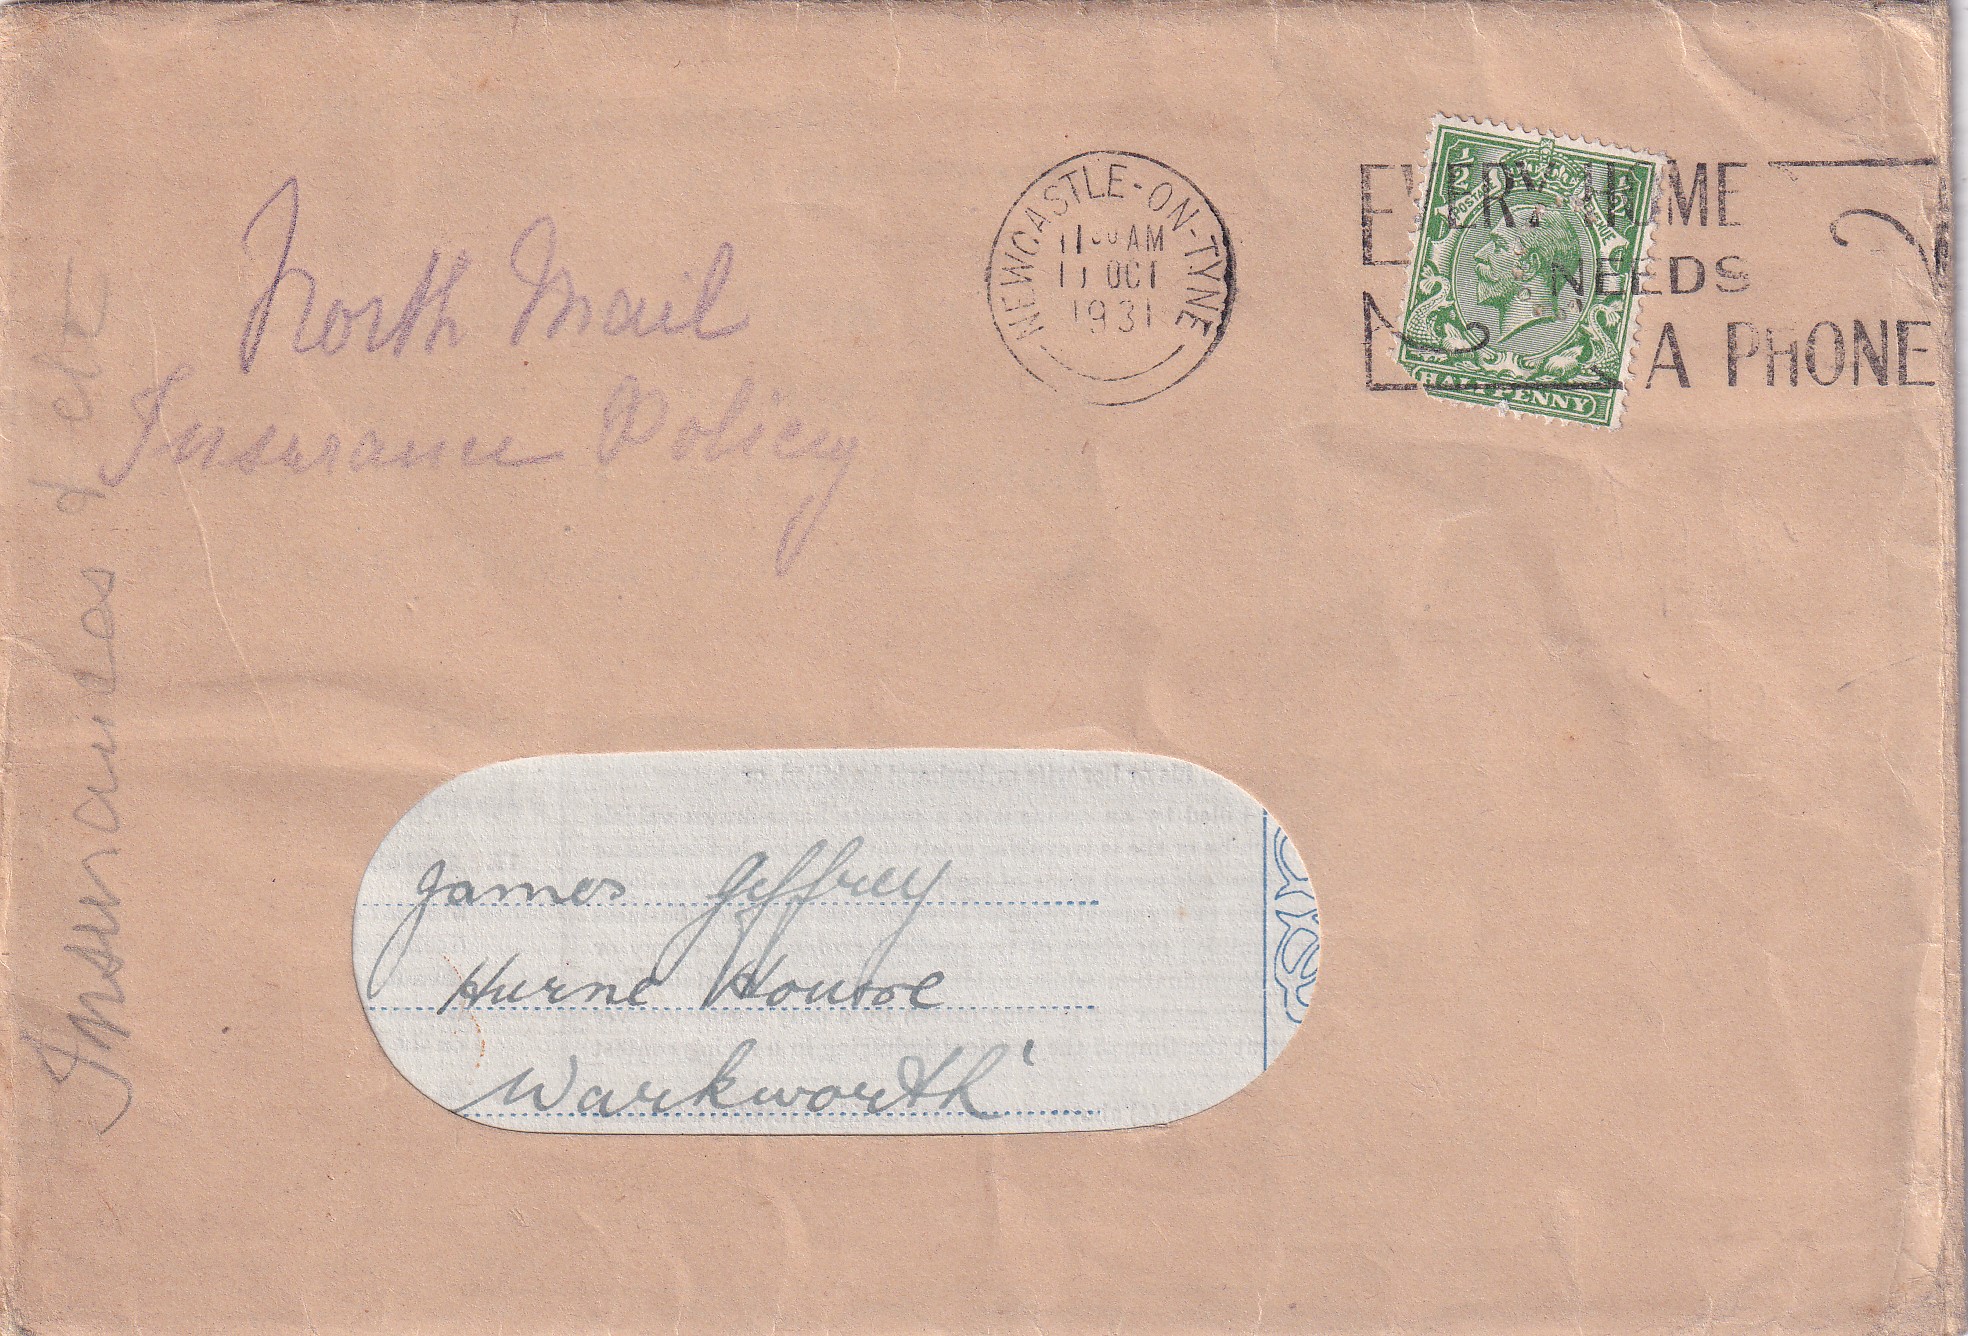 North Mail
Insurance Policy
Insurances & etc
NEWCASTLE-ON-TYNE
11 30 AM
11 OCT
1931
EVERY HOME
NEEDS
A PHONE
1/2 1/2
POSTAGE REVENUE
HALFPENNY
James Jeffrey
Hurne House
Warkworth